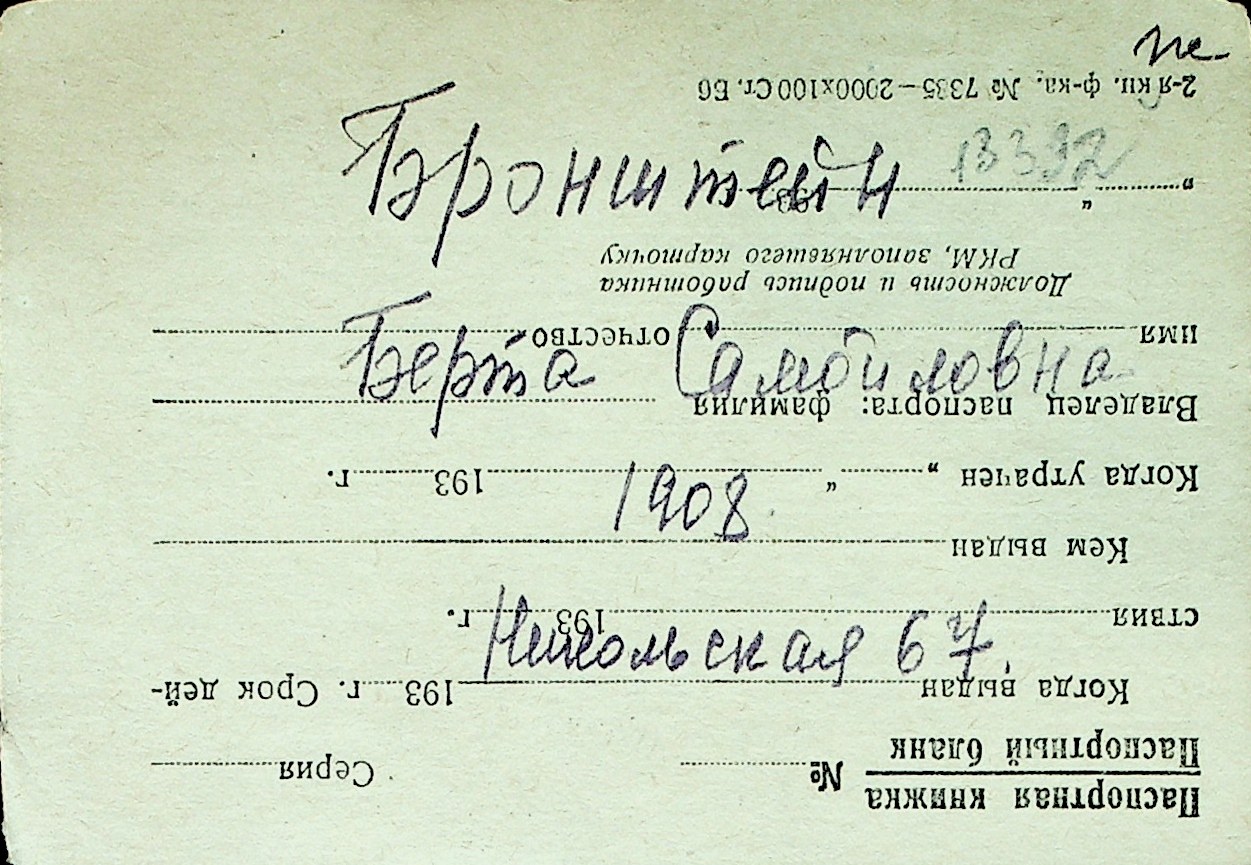 не
Бронштейн
13392
Берта Самойловна
1908
Никольская 67
Паспортная книжка
Паспортный бланк
№ Серия
Когда выдан 193 г. Срок дей-
ствия 193 г.
Кем выдан
Когда утрачен „ “ 193 г.
Владелец паспорта: фамилия
имя отчество
Должность и подпись работника
РКМ, заполнявшего карточку
„ “ 193
2-я кн. ф-ка. № 7335—2000х100 Ст. Б6